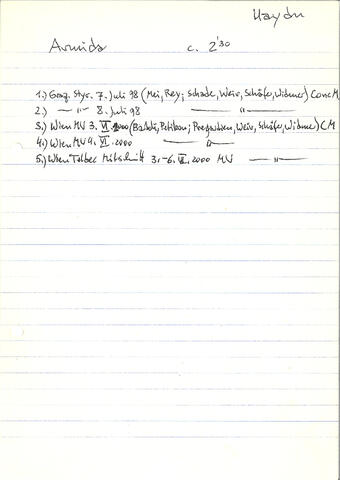 Haydn
Armida c. 2'30
1.) Graz. Styr. 7. Juli 98 (Mei, Rey; Schade, Weir, Schäfer, Widmer) Conc M
2.) — " — 8. Juli 98 — " —
3.) Wien MV 3. VI. 2000 (Bartoli, Petibon; Pregardien, Weir, Schäfer, Widmer) CM
4.) Wien MV 4. VI. 2000 — " —
5.) Wien Mitschnitt 3.-6. VI. 2000 MV — " —